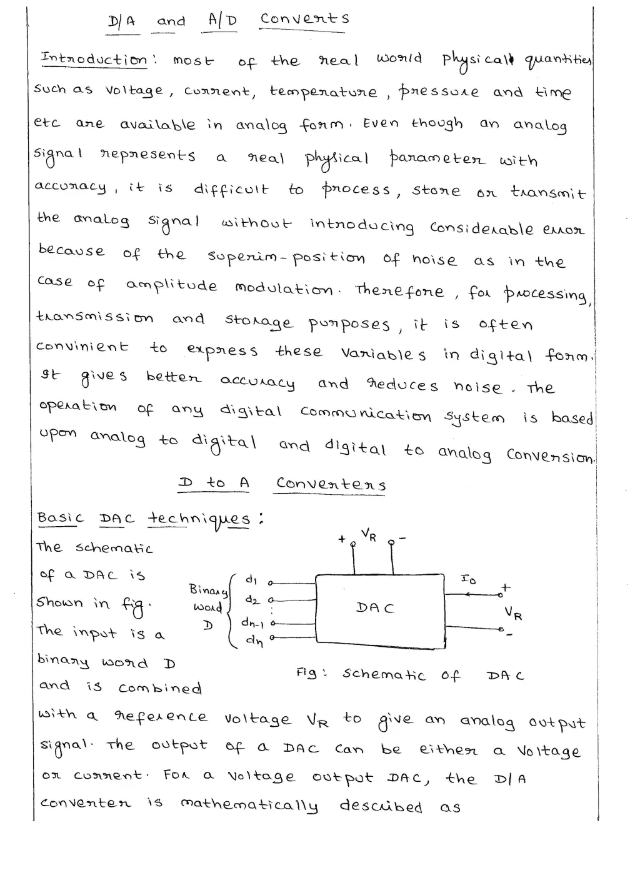 D/A and A/D Converts
Introduction: most of the real world physical quantities
such as voltage, current, temperature, pressure and time
etc are available in analog form. Even though an analog
signal represents a real physical parameter with
accuracy, it is difficult to process, store or transmit
the analog signal without introducing considerable error
because of the superim-position of noise as in the
case of amplitude modulation. Therefore, for processing,
transmission and storage purposes, it is often
convinient to express these variables in digital form.
It gives better accuracy and reduces noise. The
operation of any digital communication system is based
upon analog to digital and digital to analog conversion.
D to A Converters
Basic DAC techniques:
The schematic
of a DAC is
shown in fig.
The input is a
binary word D
and is combined
+ VR -
Binary
word
D
d1
d2
:
dn-1
dn
DAC
Io
+
VR
-
Fig: Schematic of DAC
with a reference voltage VR to give an analog output
signal. The output of a DAC can be either a voltage
or current. For a voltage output DAC, the D/A
converter is mathematically described as